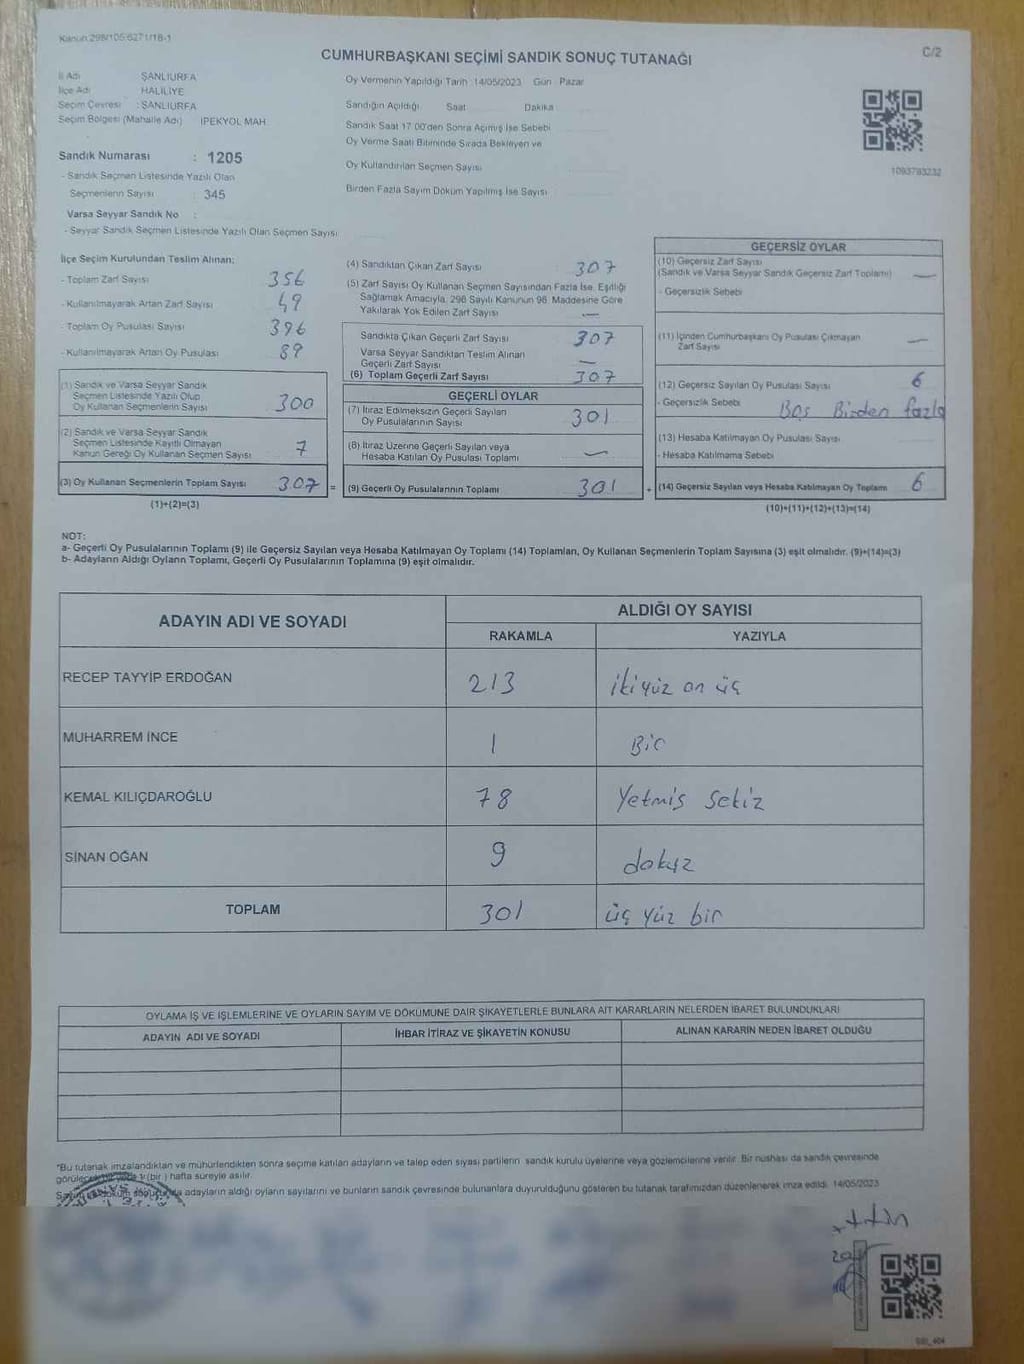 Kanun 298/105.6271/18-1
C/2
CUMHURBAŞKANI SEÇİMİ SANDIK SONUÇ TUTANAĞI
İl Adı ŞANLIURFA
İlçe Adı HALİLİYE
Seçim Çevresi : ŞANLIURFA
Seçim Bölgesi (Mahalle Adı) İPEKYOL MAH.
Sandık Numarası : 1205
- Sandık Seçmen Listesinde Yazılı Olan
Seçmenlerin Sayısı : 345
Varsa Seyyar Sandık No :
- Seyyar Sandık Seçmen Listesinde Yazılı Olan Seçmen Sayısı
Oy Vermenin Yapıldığı Tarih :14/05/2023 Gün : Pazar
Sandığın Açıldığı Saat Dakika
Sandık Saat 17.00'den Sonra Açılmış İse Sebebi
Oy Verme Saati Bitiminde Sırada Bekleyen ve
Oy Kullandırılan Seçmen Sayısı
Birden Fazla Sayım Döküm Yapılmış İse Sayısı
1093783232
İlçe Seçim Kurulundan Teslim Alınan:
- Toplam Zarf Sayısı 356
- Kullanılmayarak Artan Zarf Sayısı 49
- Toplam Oy Pusulası Sayısı 396
- Kullanılmayarak Artan Oy Pusulası 89
(1) Sandık ve Varsa Seyyar Sandık
Seçmen Listesinde Yazılı Olup
Oy Kullanan Seçmenlerin Sayısı 300
(2) Sandık ve Varsa Seyyar Sandık
Seçmen Listesinde Kayıtlı Olmayan
Kanun Gereği Oy Kullanan Seçmen Sayısı 7
(3) Oy Kullanan Seçmenlerin Toplam Sayısı 307 =
(1)+(2)=(3)
(4) Sandıktan Çıkan Zarf Sayısı 307
(5) Zarf Sayısı Oy Kullanan Seçmen Sayısından Fazla İse, Eşitliği
Sağlamak Amacıyla, 298 Sayılı Kanunun 98. Maddesine Göre
Yakılarak Yok Edilen Zarf Sayısı —
Sandıkta Çıkan Geçerli Zarf Sayısı 307
Varsa Seyyar Sandıktan Teslim Alınan
Geçerli Zarf Sayısı —
(6) Toplam Geçerli Zarf Sayısı 307
GEÇERLİ OYLAR
(7) İtiraz Edilmeksizin Geçerli Sayılan
Oy Pusulalarının Sayısı 301
(8) İtiraz Üzerine Geçerli Sayılan veya
Hesaba Katılan Oy Pusulası Toplamı —
(9) Geçerli Oy Pusulalarının Toplamı 301 +
GEÇERSİZ OYLAR
(10) Geçersiz Zarf Sayısı
(Sandık ve Varsa Seyyar Sandık Geçersiz Zarf Toplamı) —
- Geçersizlik Sebebi
(11) İçinden Cumhurbaşkanı Oy Pusulası Çıkmayan
Zarf Sayısı —
(12) Geçersiz Sayılan Oy Pusulası Sayısı 6
- Geçersizlik Sebebi Boş Birden fazla
(13) Hesaba Katılmayan Oy Pusulası Sayısı
- Hesaba Katılmama Sebebi
(14) Geçersiz Sayılan veya Hesaba Katılmayan Oy Toplamı 6
(10)+(11)+(12)+(13)=(14)
NOT:
a- Geçerli Oy Pusulalarının Toplamı (9) ile Geçersiz Sayılan veya Hesaba Katılmayan Oy Toplamı (14) Toplamları, Oy Kullanan Seçmenlerin Toplam Sayısına (3) eşit olmalıdır. (9)+(14)=(3)
b- Adayların Aldığı Oyların Toplamı, Geçerli Oy Pusulalarının Toplamına (9) eşit olmalıdır.
ADAYIN ADI VE SOYADI
ALDIĞI OY SAYISI
RAKAMLA YAZIYLA
RECEP TAYYİP ERDOĞAN 213 ikiyüz on üç
MUHARREM İNCE 1 Bir
KEMAL KILIÇDAROĞLU 78 Yetmiş Sekiz
SİNAN OĞAN 9 dokuz
TOPLAM 301 üç yüz bir
OYLAMA İŞ VE İŞLEMLERİNE VE OYLARIN SAYIM VE DÖKÜMÜNE DAİR ŞİKAYETLERLE BUNLARA AİT KARARLARIN NELERDEN İBARET BULUNDUKLARI
ADAYIN ADI VE SOYADI İHBAR İTİRAZ VE ŞİKAYETİN KONUSU ALINAN KARARIN NEDEN İBARET OLDUĞU
*Bu tutanak imzalandıktan ve mühürlendikten sonra seçime katılan adayların ve talep eden siyasi partilerin sandık kurulu üyelerine veya gözlemcilerine verilir. Bir nüshası da sandık çevresinde
görülecek bir yere 1(bir ) hafta süreyle asılır.
adayların aldığı oyların sayılarını ve bunların sandık çevresinde bulunanlara duyurulduğunu gösteren bu tutanak tarafımızdan düzenlenerek imza edildi. 14/05/2023